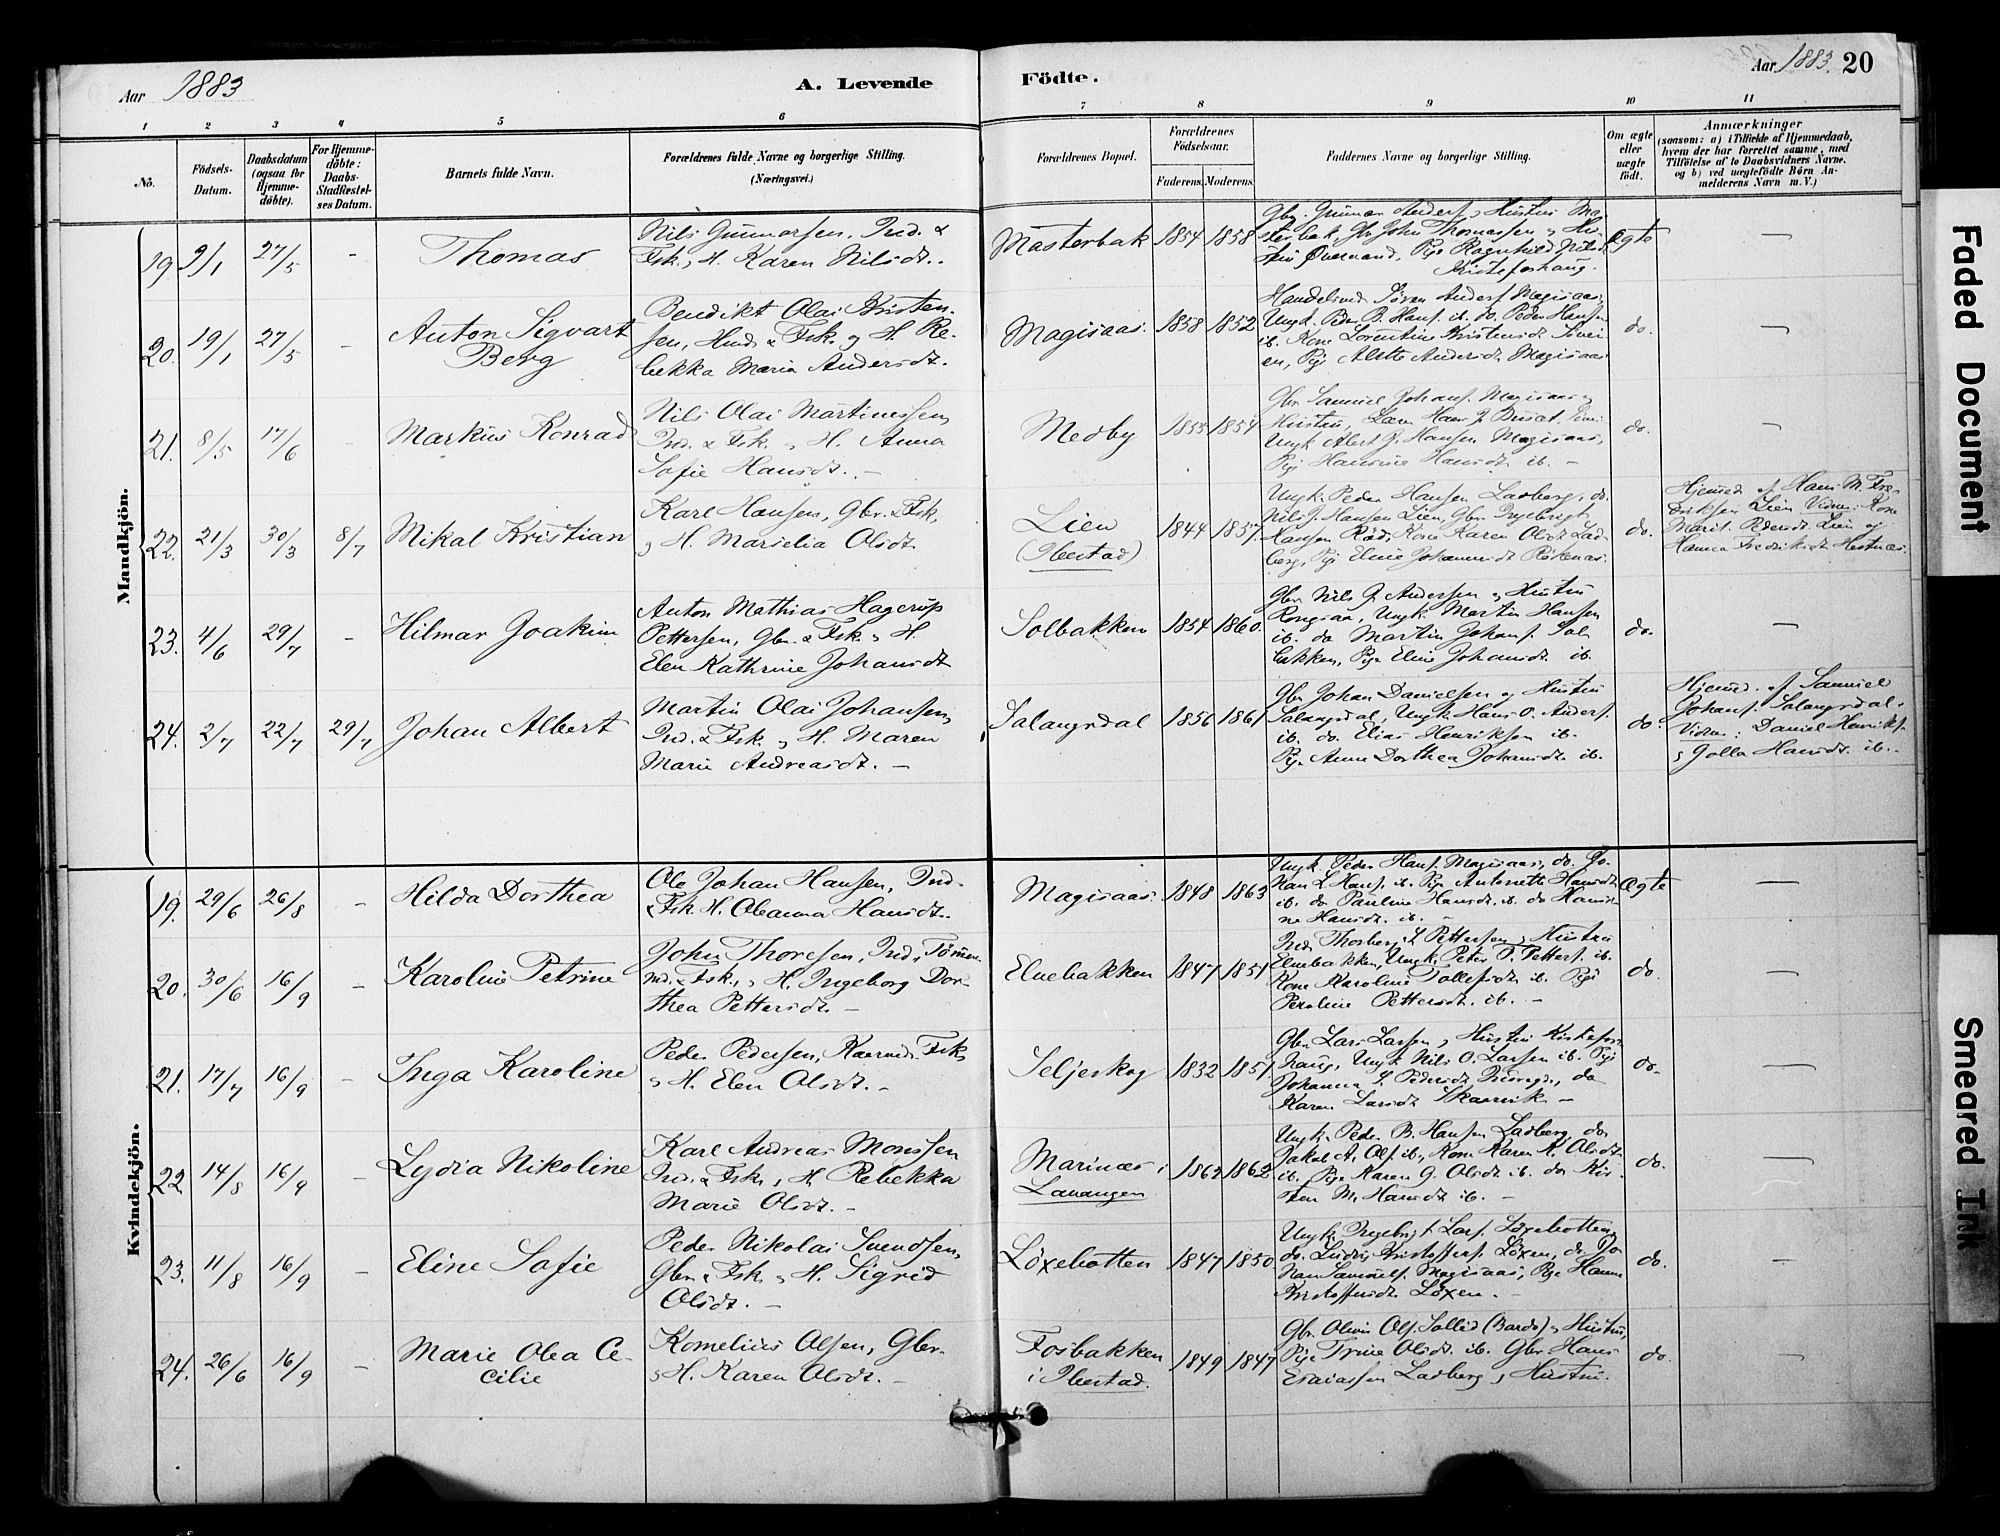 Aar 1883
A. Levende
Födte.
Aar 1883. 20
1 2 3 4 5 6 7 8 9 10 11
No.
Födsels-
Datum.
Daabsdatum
(ogsaa for
Hjemme-
döbte).
For Hjemme-
döbte:
Daabs-
Stadfæstel-
ses Datum.
Barnets fulde Navn.
Forældrenes fulde Navne og borgerlige Stilling.
(Næringsvei.)
Forældrenes Bopæl.
Forældrenes
Födselsaar.
Faderens. Moderens.
Faddernes Navne og borgerlige Stilling.
Om ægte
eller
uægte
født.
Anmærkninger
(saasom: a) i Tilfælde af Hjemmedaab,
hvem der har forrettet samme, med
Tilföielse af to Daabsvidners Navne,
og b) ved uægtefödte Börn An-
melderens Navn m. V.)
Mandkjön.
19 9/1 27/5 - Thomas
Nils Gunnarsen, Ind. &
Fsk., H. Karen Nilsdt.
Masterbak 1854 1858
Gbr. Gunnar Anders., Hustru Ma-
sterbak, Gbr. John Thomassen, Hu-
stru Øvervand, Pige Ragnhild Nilsdt.
Kisteforhaug.
Ægte —
20. 19/1 27/5 - Anton Sigvart
Berg
Benedikt Olai Kristen-
sen, Hmd. & Fsk. og H. Re-
bekka Maria Andersdt.
Magisaas. 1858 1852
Handelsmd. Sören Anders. Magisaas,
Ungk. Peder B. Hans. ib. do. Peder Hansen
ib. Kone Lorentine Kristensdt.
en, Pige Alette Andersdt. Magisaas
do. —
21. 8/5 17/6 - Markus Konrad
Nils Olai Martinussen,
Ind. & Fsk. og H. Anna
Sofie Hansdt. —
Medby 1853 1854
Gbr. Samuel Johans. Magisaas og
Hustru,
Ungk. Albert J. Hansen Magisaas,
Pige Hansine Hansdt. ib. —
do. —
22. 21/3 30/3 8/7 Mikal Kristian
Karl Hansen, Gbr. & Fsk.
og H. Marselia Olsdt.
Lien
(Ibestad)
1844 1857.
Ungk. Peder Hansen Ladberg, do.
Nils J. Hansen Lien, Gbr. Ingebrigt
Hansen Rød, Kone Karen Olsdt. Lad-
berg, Pige Eline Johannesdt.
do.
Hjemmed. af Hans M. Fre-
driksen Lien Vidner: Kone
Marit Pedersdt. Lien og
Hanna Fredriksdt.
23. 4/6 29/7 - Hilmar Joakim
Anton Mathias Hagerup
Pettersen, Gbr. & Fsk. og H.
Elen Kathrine Johansdt.
Solbakken 1854 1860.
Gbr. Nils J. Andersen og Hustru
Ungk. Martin Hansen
ib. do Martin Johans. Sol-
bakken, Pige Eline Johansdt. ib.
do. —
24. 2/7 22/7 29/7 Johan Albert
Martin Olai Johansen,
Ind. & Fsk. og H. Maren
Marie Andreasdt. —
Salangsdal 1856 1861
Gbr. Johan Danielsen og Hustru
Salangsdal, Ungk. Hans O. Anders.
ib. do. Elias Henriksen ib.
Pige Anne Dorthea Johansdt. ib.
do.
Hjemmd. af Samuel
Johans. Salangsdal.
Vidner: Daniel Henriks.
og Golla Hansdt. ib. -
Kvindekjön.
19. 29/6 26/8 - Hilda Dorthea
Ole Johan Hansen, Ind.
& Fsk. H. Oleanna Hansdt.
Magisaas. 1848 1863
Ungk. Peder Hans. Magisaas, do. Jo-
han L. Hans. ib. Pige Antonette Hansdt.
ib. do Pauline Hansdt. ib. do Hansi-
ne Hansdt. ib. -
Ægte —
20. 30/6 16/9 - Karoline Petrine
John Thoresen, Ind., Tömmer-
md. & Fsk., og H. Ingeborg Dor-
thea Pettersdt. —
Elvebakken 1847 1851
Ind. Thorberg L. Pettersen, Hustru
Elvebakken, Ungk. Peter D. Petters. ib.
Kone Karoline Tollefsdt. ib. Pige
Peroline Pettersdt. ib. -
do. —
21. 17/7 16/9 - Inga Karoline
Peder Pedersen, Kaarmd. Fsk.
og H. Elen Olsdt. -
Seljeskog 1832 1851
Gbr. Lars Larsen, Hustru Kistefor-
haug, Ungk. Nils O. Larsen ib. Pige
Johanna S. Pedersdt. do
Karen Larsdt. Skaarvik —
do. —
22 14/8 16/9 - Lydia Nikoline
Karl Andreas Monssen
Ind. & Fsk., H. Rebekka
Marie Olsdt. -
Marinæs i
Lavangen.
1862 1862
Ungk. Peder B. Hansen Ladberg, do
Jakob A. Ols. ib., Kone Karen K. Olsdt.
ib. Pige Karen G. Olsdt. ib. do Kir-
sten M. Hansdt. ib. —
do. —
23. 11/8 16/9 - Eline Sofie
Peder Nikolai Svendsen,
Gbr. & Fsk. og H. Sigrid
Olsdt. -
Löxebotten 1847 1850
Ungk. Ingebrigt Lars. Löxebotten,
do. Ludvig Kristoffers. Löxen, do. Jo-
han Samuels. Magisaas, Pige Hanna
Kristoffersdt. Löxen. -
do. —
24. 26/6 16/9 - Marie Olea Ce-
cilie
Kornelius Olsen, Gbr.
og H. Karen Olsdt. —
Fosbakken
i Ibestad.
1849 1847
Gbr. Oluis Ols. Sollid (Bardo) og Hustru,
Pige Trine Olsdt. ib. Gbr. Hans
Esaiassen Ladberg og Hustru.
do. —
Faded Document
Smeared Ink